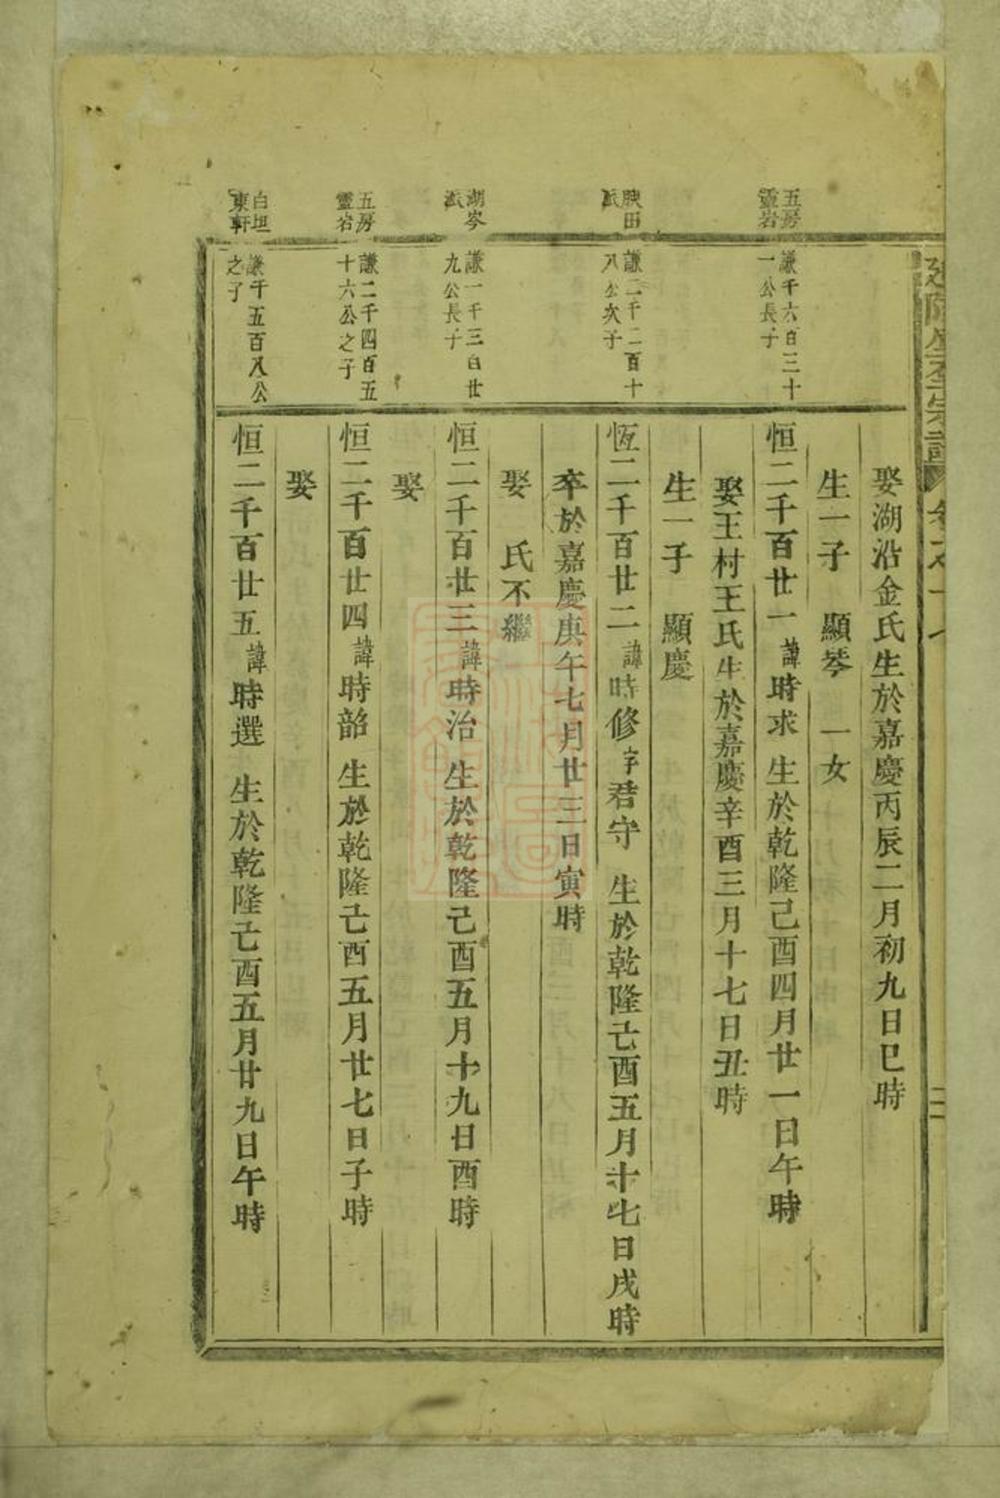 娶湖沿金氏生於嘉慶丙辰二月初九日巳時
生一子 顯芩 一女
五房
靈岩
謙千六百三十
一公長子
恒二千百廿一諱時求 生於乾隆己酉四月廿一日午時
娶王村王氏生於嘉慶辛酉三月十七日丑時
生一子 顯慶
田
派
謙二千二百十
八公次子
恆二千百廿二諱時修字君守 生於乾隆己酉五月十七日戌時
卒於嘉慶庚午七月廿三日寅時
娶 氏不繼
湖岑
派
謙一千三百廿
九公長子
恒二千百廿三諱時治 生於乾隆己酉五月十九日酉時
娶
五房
靈岩
謙二千四百五
十六公之子
恒二千百廿四諱時韶 生於乾隆己酉五月廿七日子時
娶
白坦
東軒
謙千五百八公
之子
恒二千百廿五諱時選 生於乾隆己酉五月廿九日午時